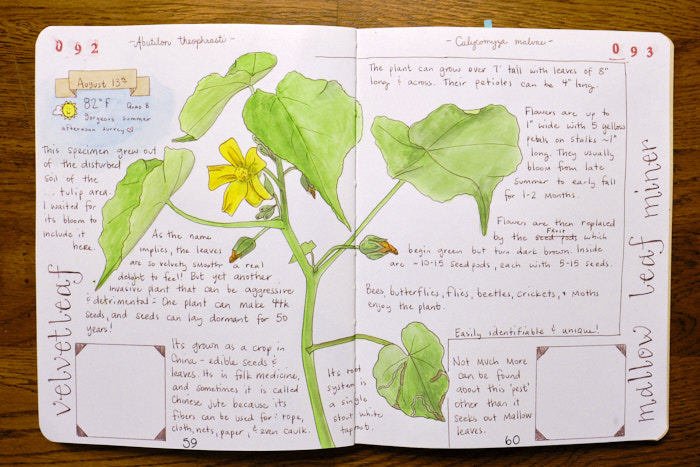 092
- Abutilon theophrasti -
August 13th
82°F Quad B
Gorgeous summer
afternoon survey
This specimen grew out
of the disturbed
soil of the
... tulip area.
I waited for
its bloom to
include it
here.
As the name
implies, the leaves
are so velvety smooth! A real
delight to feel! But yet another
invasive plant that can be aggressive
& detrimental - One plant can make 17k
seeds, and seeds can lay dormant for 50
years!
velvetleaf
Its grown as a crop in
China - edible seeds &
leaves. Its in folk medicine,
and sometimes it is called
Chinese jute because its
fibers can be used for: rope,
cloth, nets, paper, & even caulk.
Its root
system is
a single
stout white
taproot.
59
- Calycomyza malvae -
093
The plant can grow over 7' tall with leaves of 8"
long & across. Their petioles can be 4" long.
Flowers are up to
1" wide with 5 yellow
petals on stalks ~1"
long. They usually
bloom from late
summer to early fall
for 1-2 months.
Flowers are then replaced
by the seed pods Fruit which
begin green but turn dark brown. Inside
are ~10-15 seedpods, each with 5-15 seeds.
Bees, butterflies, flies, beetles, crickets, & moths
enjoy the plant.
Easily identifiable & unique!
mallow leaf miner
Not much more
can be found
about this 'pest'
other than it
seeks out mallow
leaves.
60